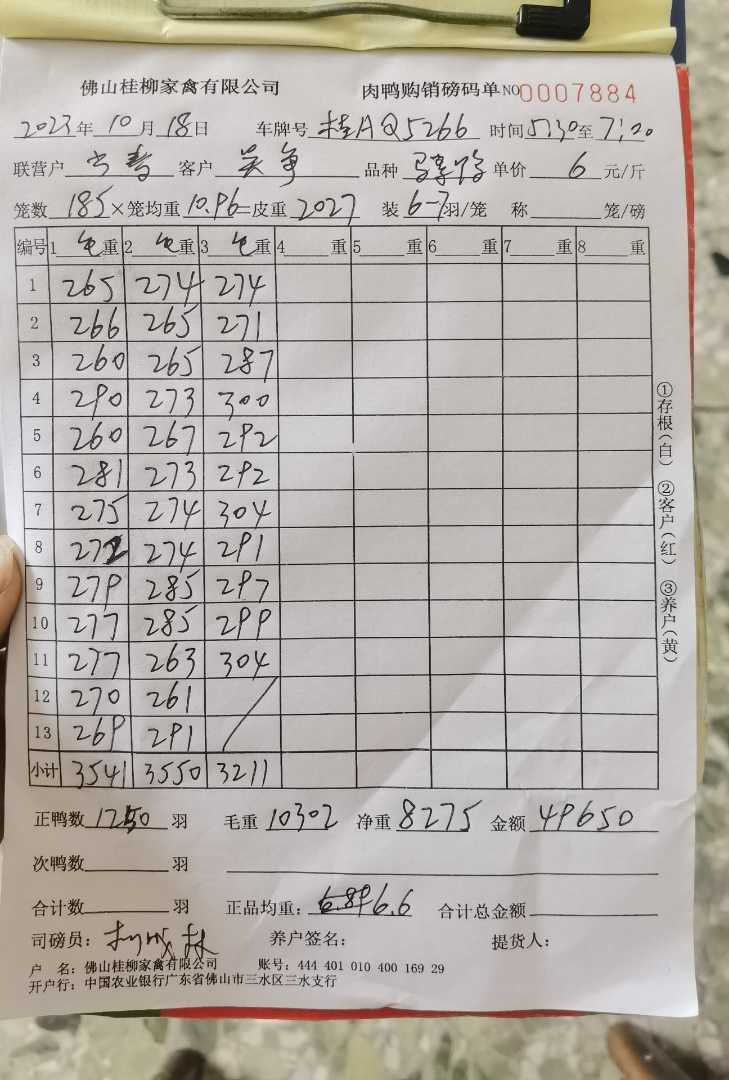 佛山桂柳家禽有限公司 肉鸭购销磅码单 NO 0007884
2023年10月18日 车牌号 桂AQ5266 时间 5:30至7:20
联营户 客户 吴 品种 单价 6 元/斤
笼数 185×笼均重 10.96=皮重 2027 装 6-7羽/笼 称 笼/磅
编号 1 毛重 2 毛重 3 毛重 4 重 5 重 6 重 7 重 8 重
1 265 274 274
2 266 265 271
3 260 265 287
4 290 273 300
5 260 267 292
6 281 273 292
7 275 274 304
8 272 274 291
9 279 285 297
10 277 285 299
11 277 263 304
12 270 261
13 269 291
小计 3541 3550 3211
正鸭数 1250 羽 毛重 10302 净重 8275 金额 49650
次鸭数 羽
合计数 羽 正品均重: 6.6 合计总金额
司磅员: 养户签名: 提货人:
户 名: 佛山桂柳家禽有限公司 账号: 444 401 010 400 169 29
开户行: 中国农业银行广东省佛山市三水区三水支行
①存根(白) ②客户(红) ③养户(黄)